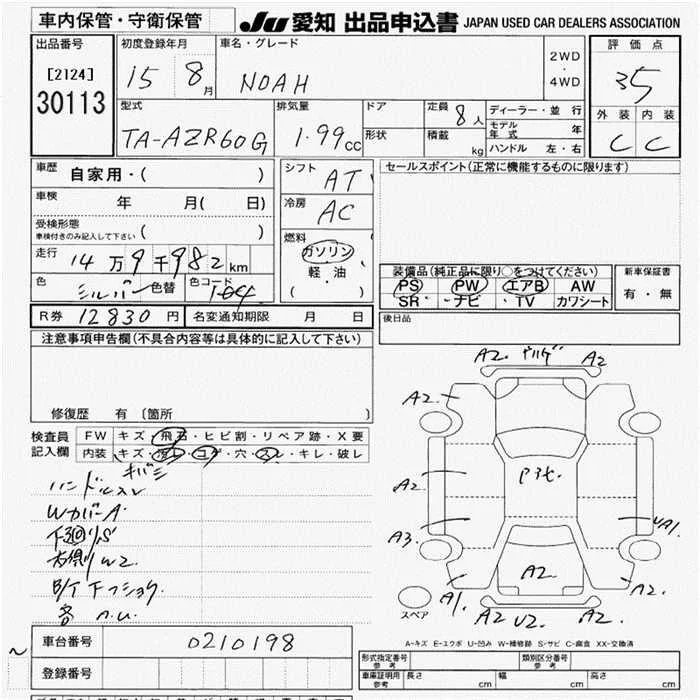 車内保管・守衛保管
JU 愛知 出品申込書 JAPAN USED CAR DEALERS ASSOCIATION
出品番号
[2124]
30113
初度登録年月
15 8月
車名・グレード
NOAH
2WD
・
4WD
評価点
3.5
外装 内装
C C
型式
TA-AZR60G
排気量
1.99cc
ドア
形状
定員 8人
積載 kg
ディーラー・並行
モデル年式 年
ハンドル 左・右
車歴 自家用・( )
車検 年 月( 日)
受検形態
車検付きのみ記入して下さい ( )
走行 14万9千982km
色 シルバー 色替 色コード 1C4
シフト AT
冷房 AC
燃料
ガソリン
軽油
( )
セールスポイント(正常に機能するものに限ります)
装備品(純正品に限り○をつけてください)
PS PW エアB AW
SR ナビ TV カワシート
新車保証書
有・無
R券 12830円 名変通知期限 月 日
後日品
注意事項申告欄(不具合内容等は具体的に記入して下さい)
修復歴 有〔箇所 〕
検査員
記入欄
FW キズ・飛石・ヒビ割・リペア跡・X要
内装 キズ・汚レ・コゲ・穴・スレ・キレ・破レ
ハンドルスレ
Wカバー A
下回リS
B/T
A2 A2
A2
A2
A3
A1
A2
A2
A2 U2 A2
スペア
A-キズ E-エクボ U-凹み W-補修跡 S-サビ C-腐食 XX-交換済
車台番号 0210198
登録番号
形式指定番号
参考
類別区分番号
参考
車庫証明用
参考
長さ cm 幅 cm 高さ cm